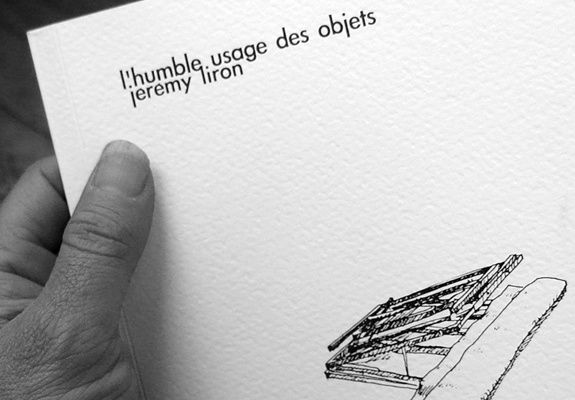 l'humble usage des objets
jeremy liron